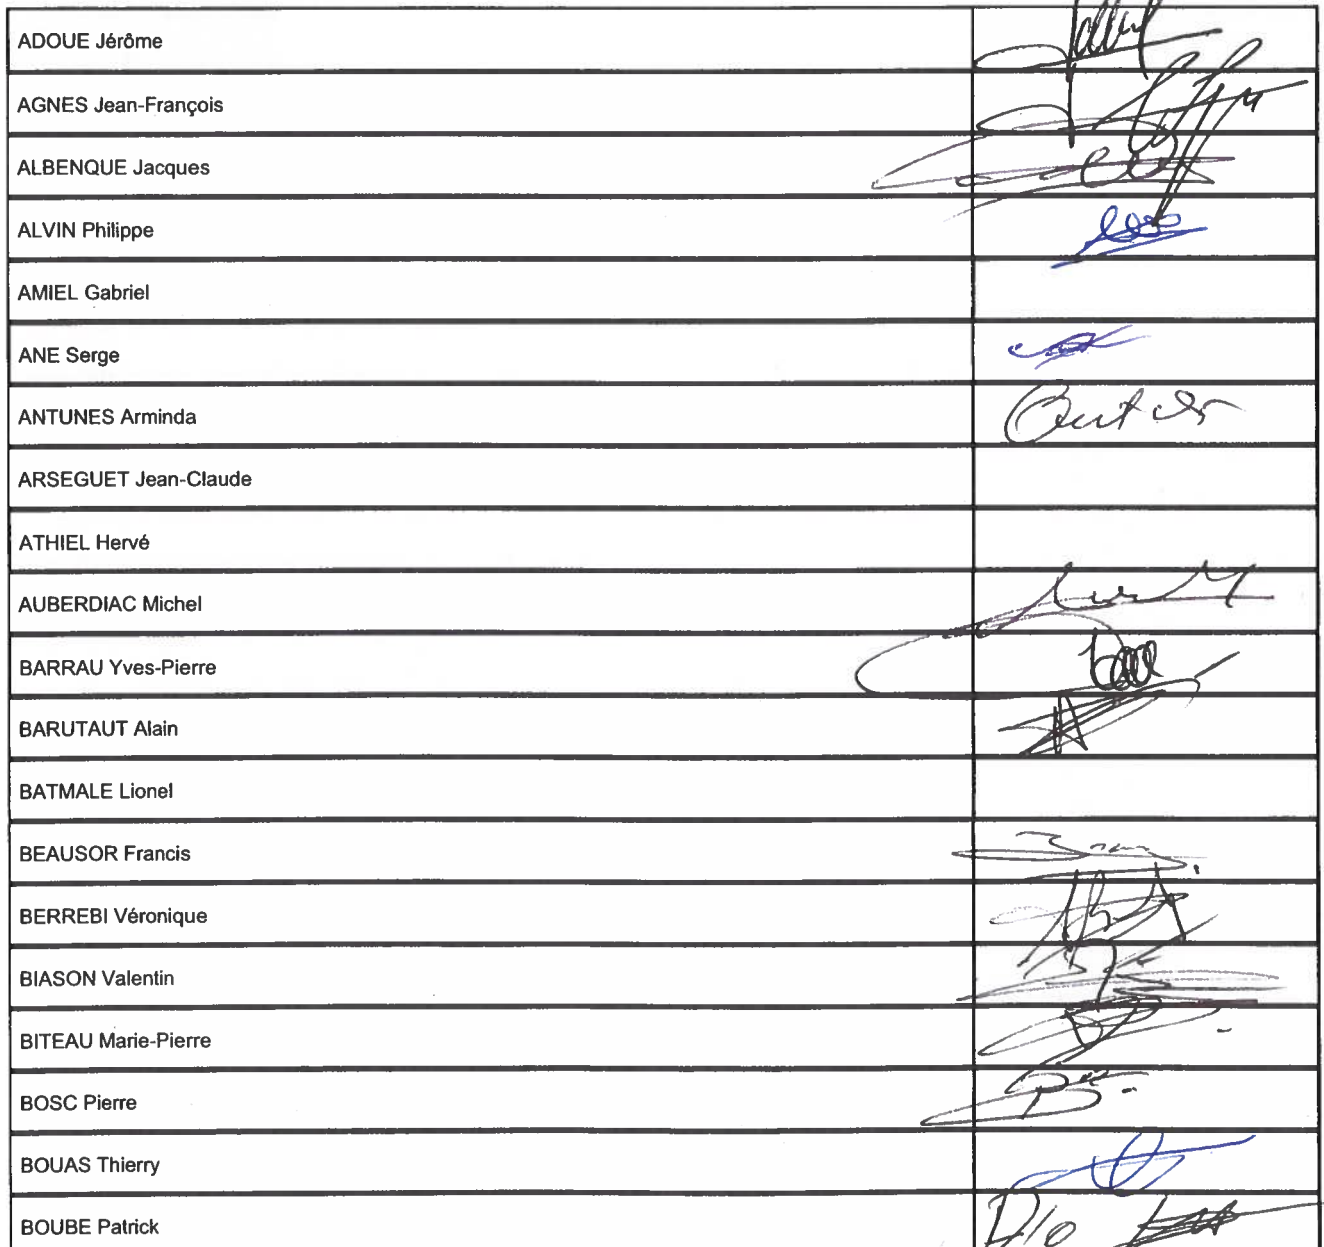 ADOUE Jérôme
AGNES Jean-François
ALBENQUE Jacques
ALVIN Philippe
AMIEL Gabriel
ANE Serge
ANTUNES Arminda
ARSEGUET Jean-Claude
ATHIEL Hervé
AUBERDIAC Michel
BARRAU Yves-Pierre
BARUTAUT Alain
BATMALE Lionel
BEAUSOR Francis
BERREBI Véronique
BIASON Valentin
BITEAU Marie-Pierre
BOSC Pierre
BOUAS Thierry
BOUBE Patrick